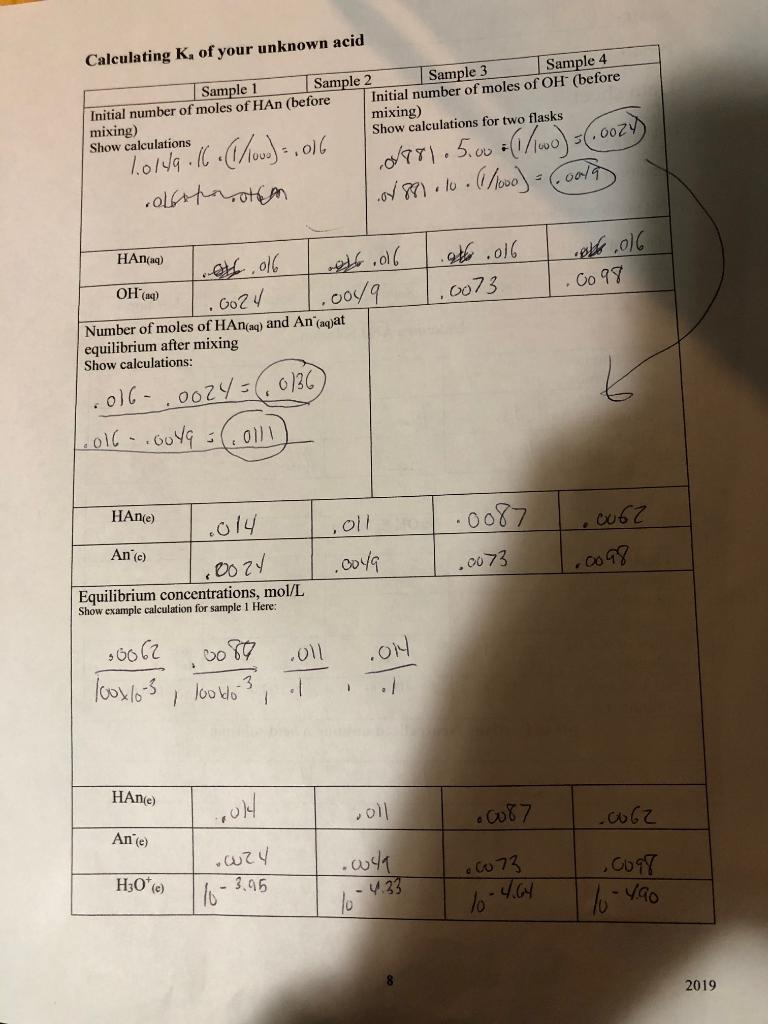 Calculating Ka of your unknown acid
Sample 1 Sample 2 Sample 3 Sample 4
Initial number of moles of HAn (before
mixing)
Show calculations
1.0149 · 16 · (1/1000) = .016
Initial number of moles of OH⁻ (before
mixing)
Show calculations for two flasks
· 5.00 · (1/1000) = .0024
· 10 · (1/1000) = .0049
HAn(aq) .016 .016 .016 .016
OH⁻(aq) .0024 .0049 .0073 .0098
Number of moles of HAn(aq) and An⁻(aq)at
equilibrium after mixing
Show calculations:
.016 - .0024 = .0136
.016 - .0049 = .0111
HAn(e) .014 .011 .0087 .0062
An⁻(e) .0024 .0049 .0073 .0098
Equilibrium concentrations, mol/L
Show example calculation for sample 1 Here:
.0062 .0087 .011 .014
100x10-3 , 100x10-3 , .1 , .1
HAn(e) .014 .011 .0087 .0062
An⁻(e) .0024 .0049 .0073 .0098
H3O⁺(e) 10-3.95 10-4.33 10-4.64 10-4.90
8
2019